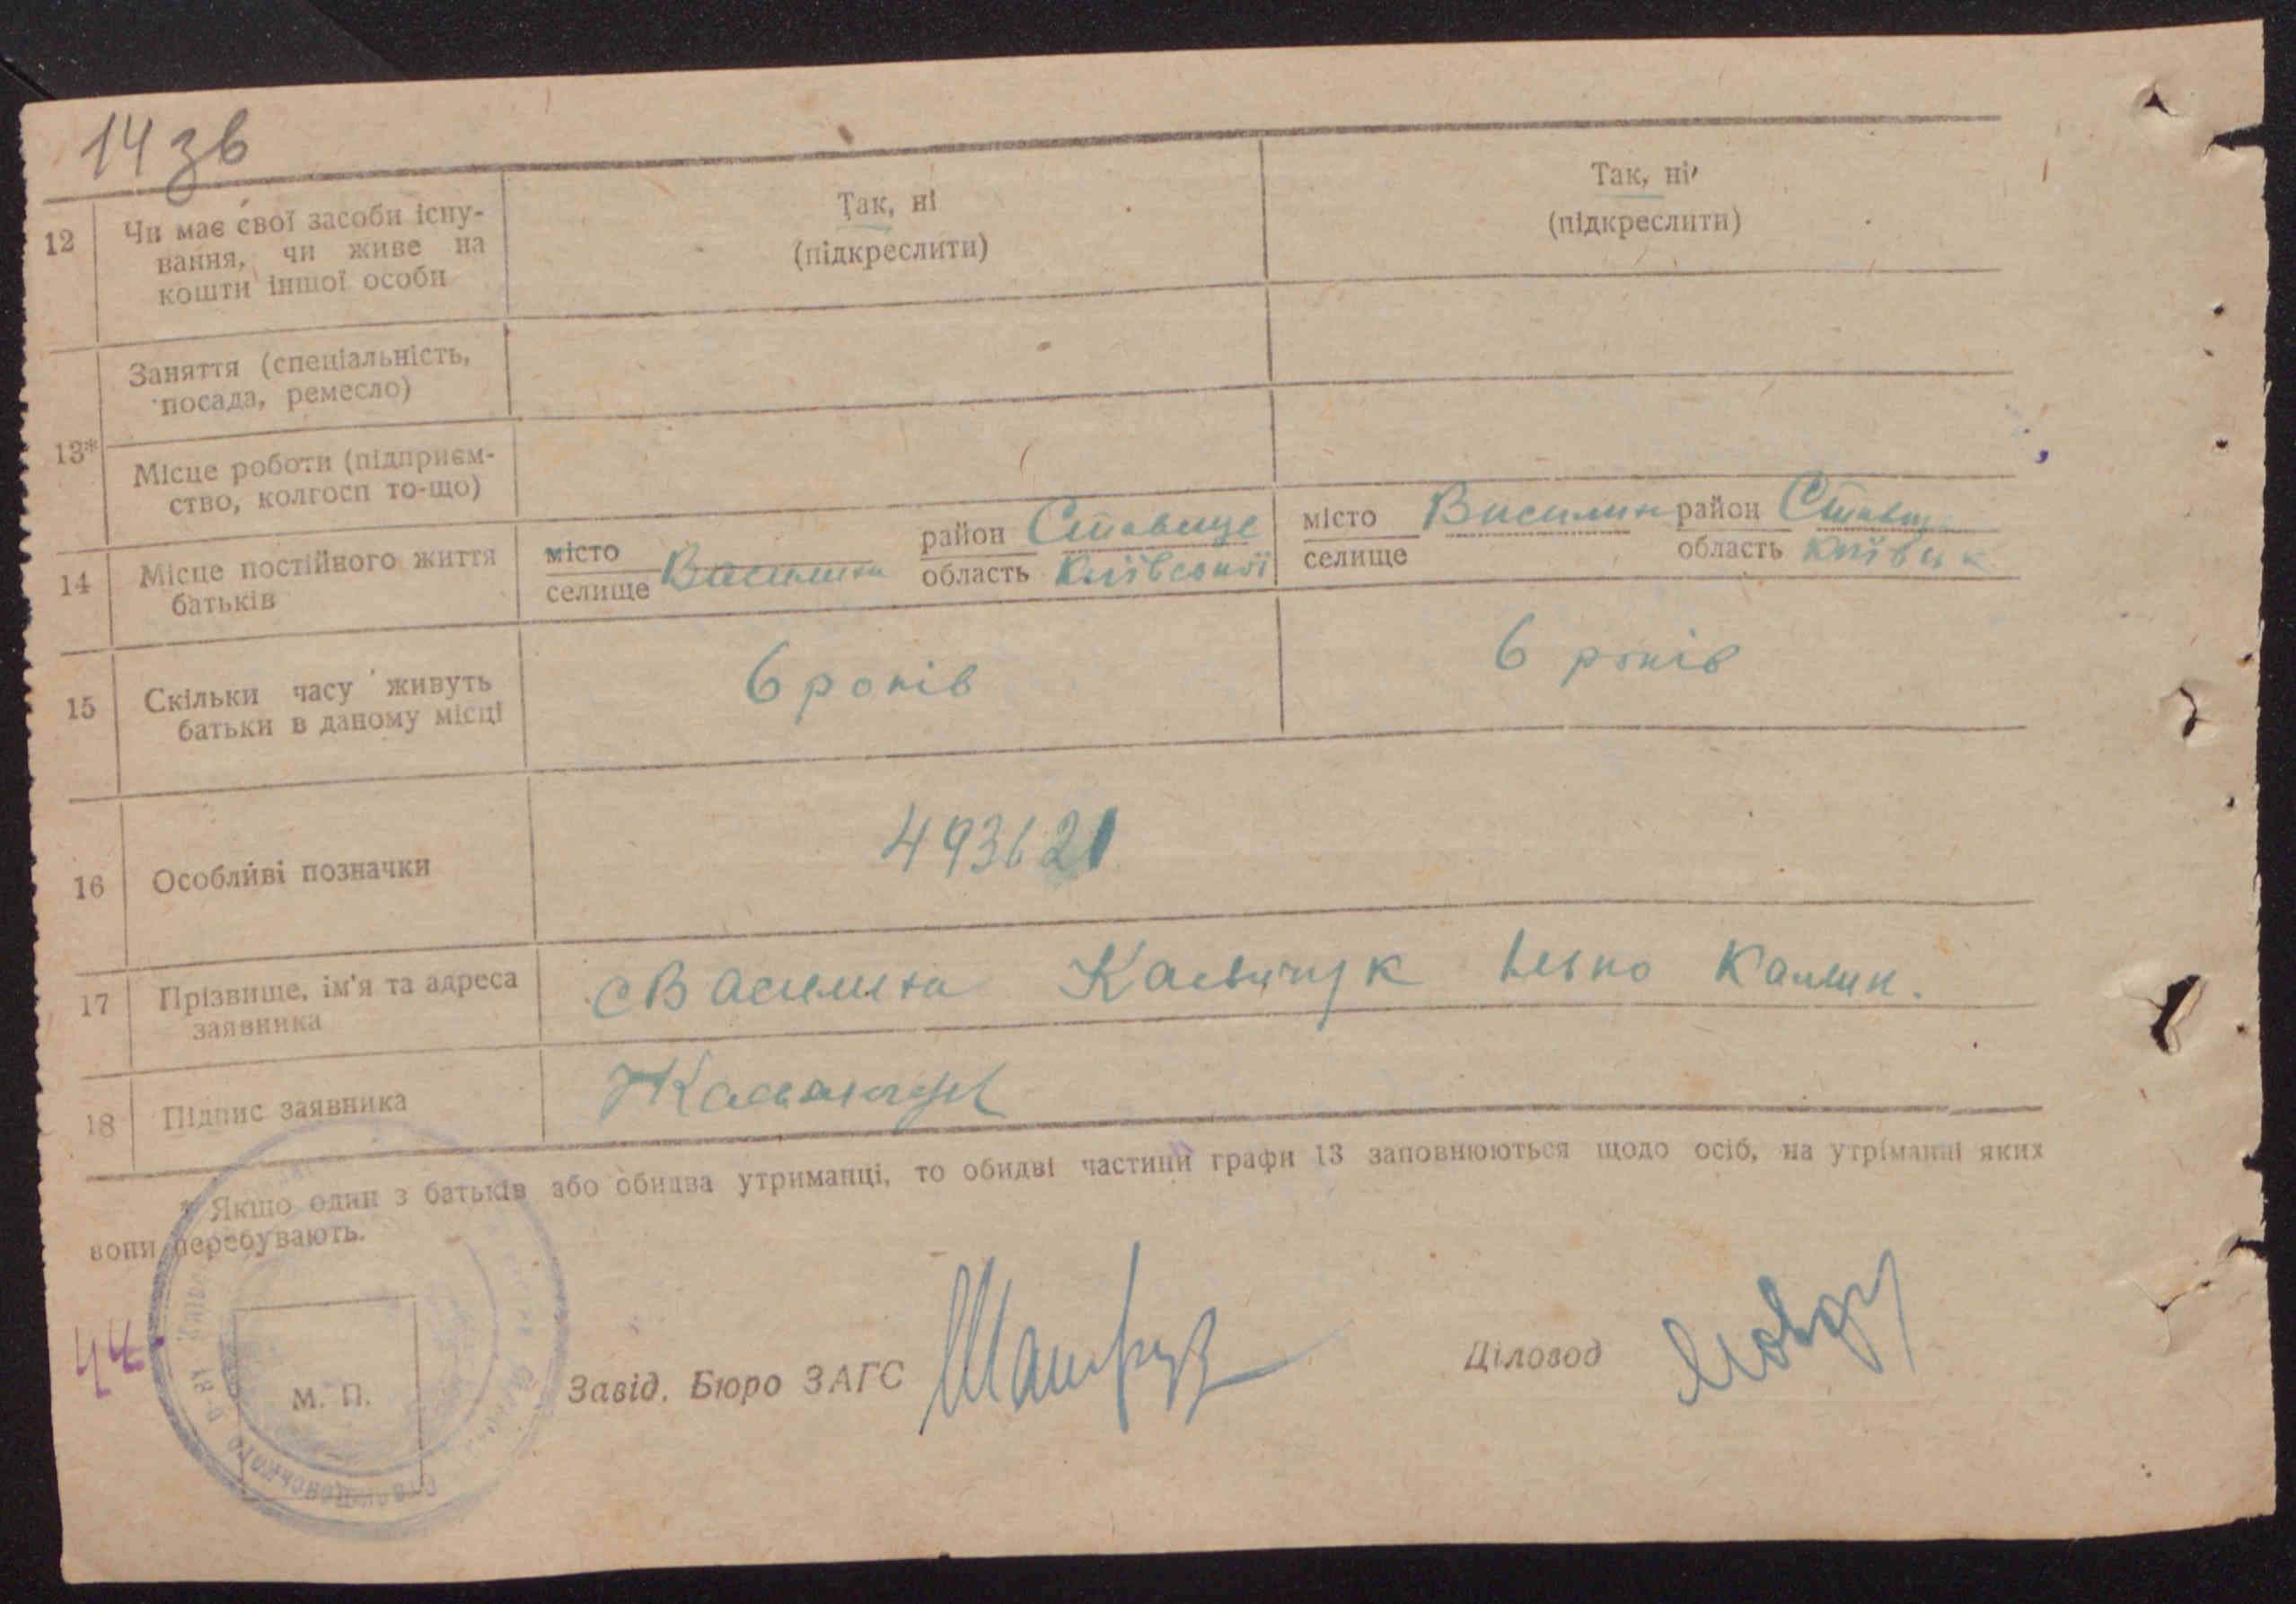 14 зв
12 Чи має свої засоби існу-
вання, чи живе на
кошти іншої особи
Так, ні
(підкреслити)
Так, ні
(підкреслити)
13*
Заняття (спеціальність,
посада, ремесло)
Місце роботи (підприєм-
ство, колгосп то-що)
14 Місце постійного життя
батьків
місто
селище
район Ставище
область Київської
місто
селище
район
область
15 Скільки часу живуть
батьки в даному місці
6 років
6 років
16 Особливі позначки
493621
17 Прізвище, ім'я та адреса
заявника
18 Підпис заявника
* Якщо один з батьків або обидва утриманці, то обидві частини графи 13 заповнюються щодо осіб, на утріманні яких
вони перебувають.
М. П.
Завід. Бюро ЗАГС
Діловод